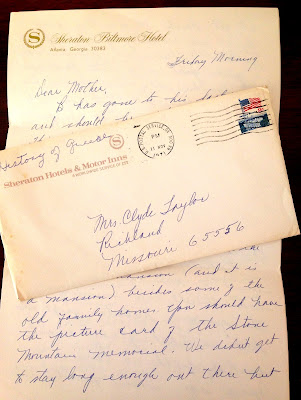 S
Sheraton Biltmore Hotel
Atlanta, Georgia 30383
Friday Morning
Dear Mother,
B has gone to his last
and should be
History of Greece
Sheraton Hotels & Motor Inns
PM
1971
Mrs. Clyde Taylor
Richland
Missouri 65556
mansion (and it is
a mansion) besides some of the
old family homes you should have
the picture card of the Stone
Mountain memorial. We didn't get
to stay long enough out there but